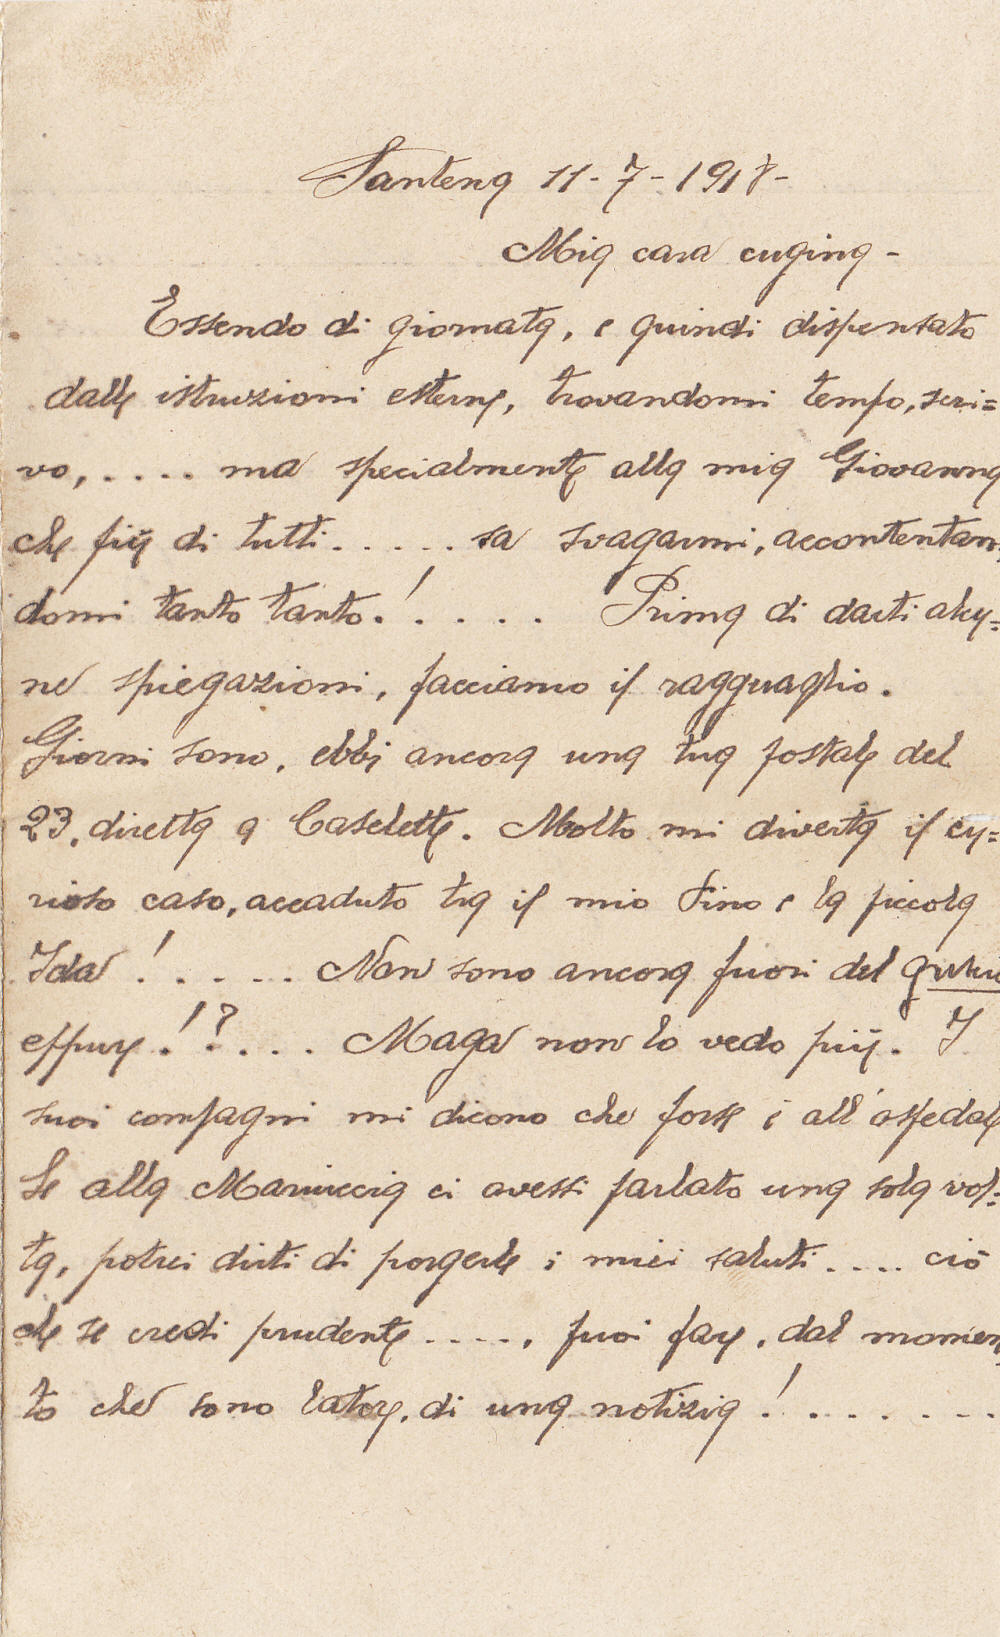 Santena 11-7-1918-
Mia cara cugina -
Essendo di giornata, e quindi dispensato
dalle istruzioni esterne, trovandomi tempo, scri=
vo, .... ma specialmente alla mia Giovanna
che più di tutti ..... sa svagarmi, accontentan=
domi tanto tanto.! .... Prima di darti alcu=
ne spiegazioni, facciamo il ragguaglio.
Giorni sono, ebbi ancora una tua postale del
23, diretta a Caselette. Molto mi diverta il cu=
rioso caso, accaduto tra il mio Pino e la piccola
Ida ! ..... Non sono ancora fuori del
eppure !? .... Maga non lo vedo più. I
suoi compagni mi dicono che forse è all'ospedale
Se alla Mariuccia ci avessi parlato una sola vol=
ta, potrei dirti di porgerle i miei saluti .... ciò
che se credi prudente ...., puoi fare, dal momen=
to che sono latore, di una notizia ! .......